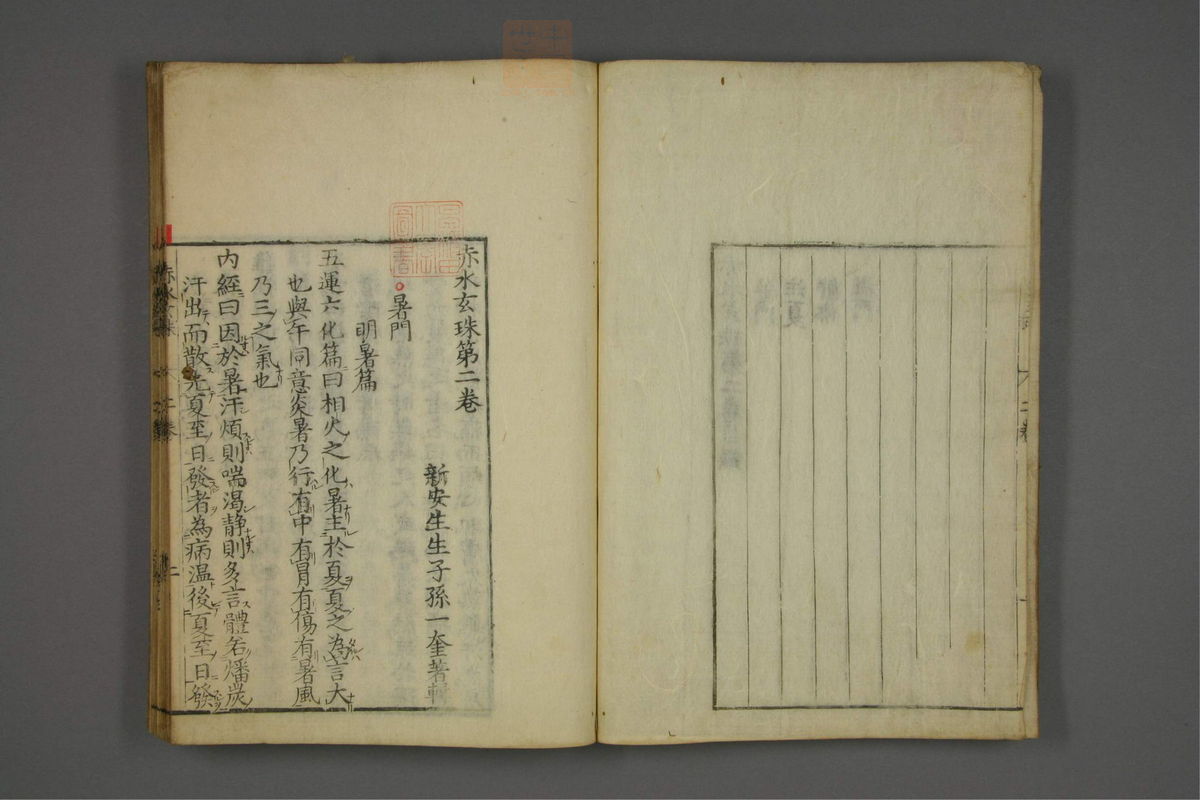 赤水玄珠第二卷
新安生生子孫一奎著輯
暑門
明暑篇
五運六化篇曰相火之化暑主於夏夏之為言大
也與午同意炎暑乃行有中有冒有傷有暑風
乃三之氣也
内經曰因於暑汗煩則喘渴静則多言體若燔炭
汗出而散先夏至日發者為病温後夏至日發
赤水玄珠
二卷
二